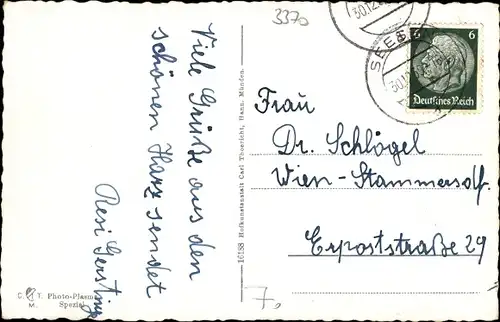 3370
30.12.
SEESE
30.12.
6 6
Deutsches Reich
Viele Grüße aus den
schönen Harz sendet
Resi Gersting
Frau
Dr. Schlögel
Wien-Stammersdf.
Erpoststraße 29
10158 Hofkunstanstalt Carl Thoericht, Hann. Münden.
C. T. Photo-Plasma
M. Spezial
7.